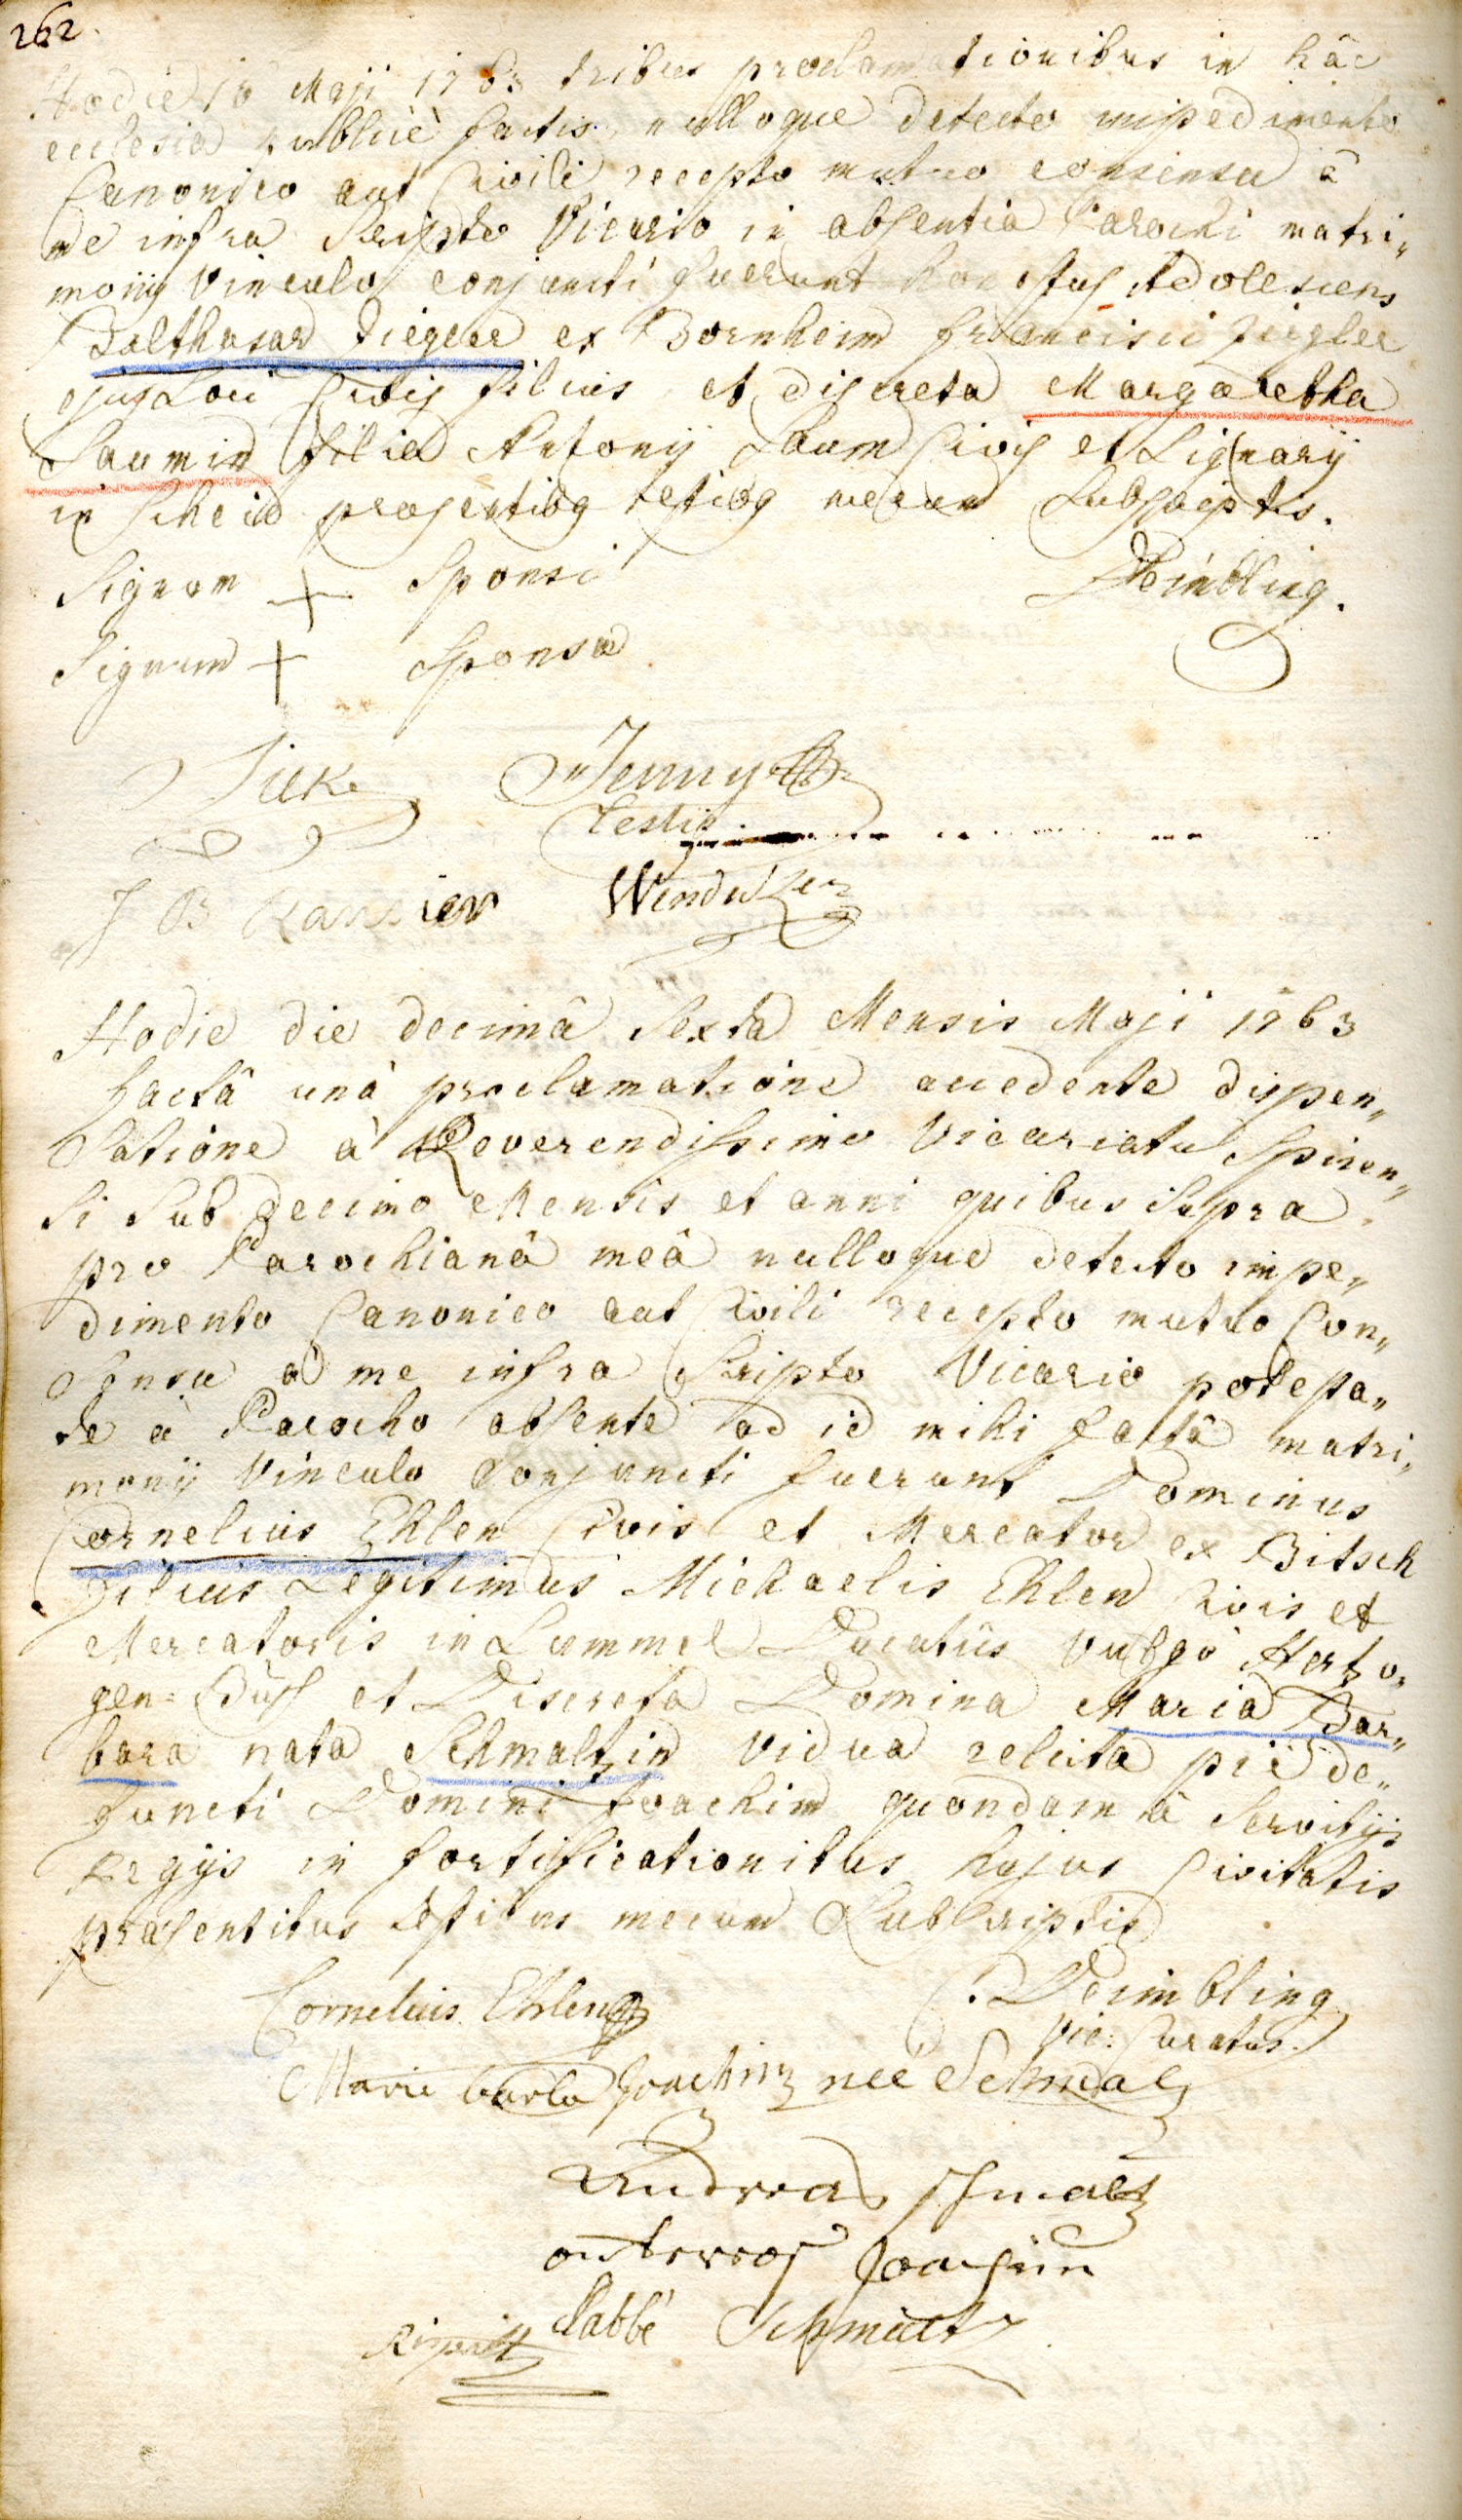 262.
Hodie 10 Maji 1763 tribus proclamationibus in hâc
ecclesia publicè factis, nulloque detecto impedimento
Canonico aut Civili recepto mutuo consensu â
me infra Scripto Vicario in absentia Parochi matri„
monij Vinculo conjuncti fuerunt honestus Adolescens
Balthasar Ziegler ex Bornheim Francisci Ziegler
ejus Loci Civis filius et discreta Margaretha
Laumin filia Antonij Laum Civis et Lignarij
in Scheid testibus mecum Subscriptis.
Signum + Sponsi
Deimbling.
Signum + Sponsa
Jenny
testis
J B
Hodie die decimâ Sexta Mensis Maji 1763
factâ unâ proclamatione accedente dispen„
Satione â Reverendissimo Vicariatu Spiren„
Si Sub decimo Mensis et anni quibus Supra.
pro Parochianâ meâ nulloque detecto impe„
dimento Canonico aut Civili recepto mutuo Con„
Sensu â me infra Scripto Vicario potesta„
te â Parocho absente ad id mihi factâ matri„
monij Vinculo Conjuncti fuerunt Dominus
Cornelius Ehlen Civis et Mercator ex Bitsch
filius Legitimus Michaelis Ehlen Civis et
Mercatoris in Lummel Ducatûs vulgò Hertzo„
gen=Busch et Discreta Domina Maria Bar„
bara nata Schmaltzin vidua relicta piè de„
functi Domini Joachim quondam â Servitijs
Regijs in fortificationibus hujus Civitatis
præsentibus testibus mecum Subscriptis
Cornelius Ehlen
Deimbling
Vic: Curatus.
Marie barba Joachim neé Schmalz
Andreas Schmaltz
Andreas Joachim
l'abbé Schmidt